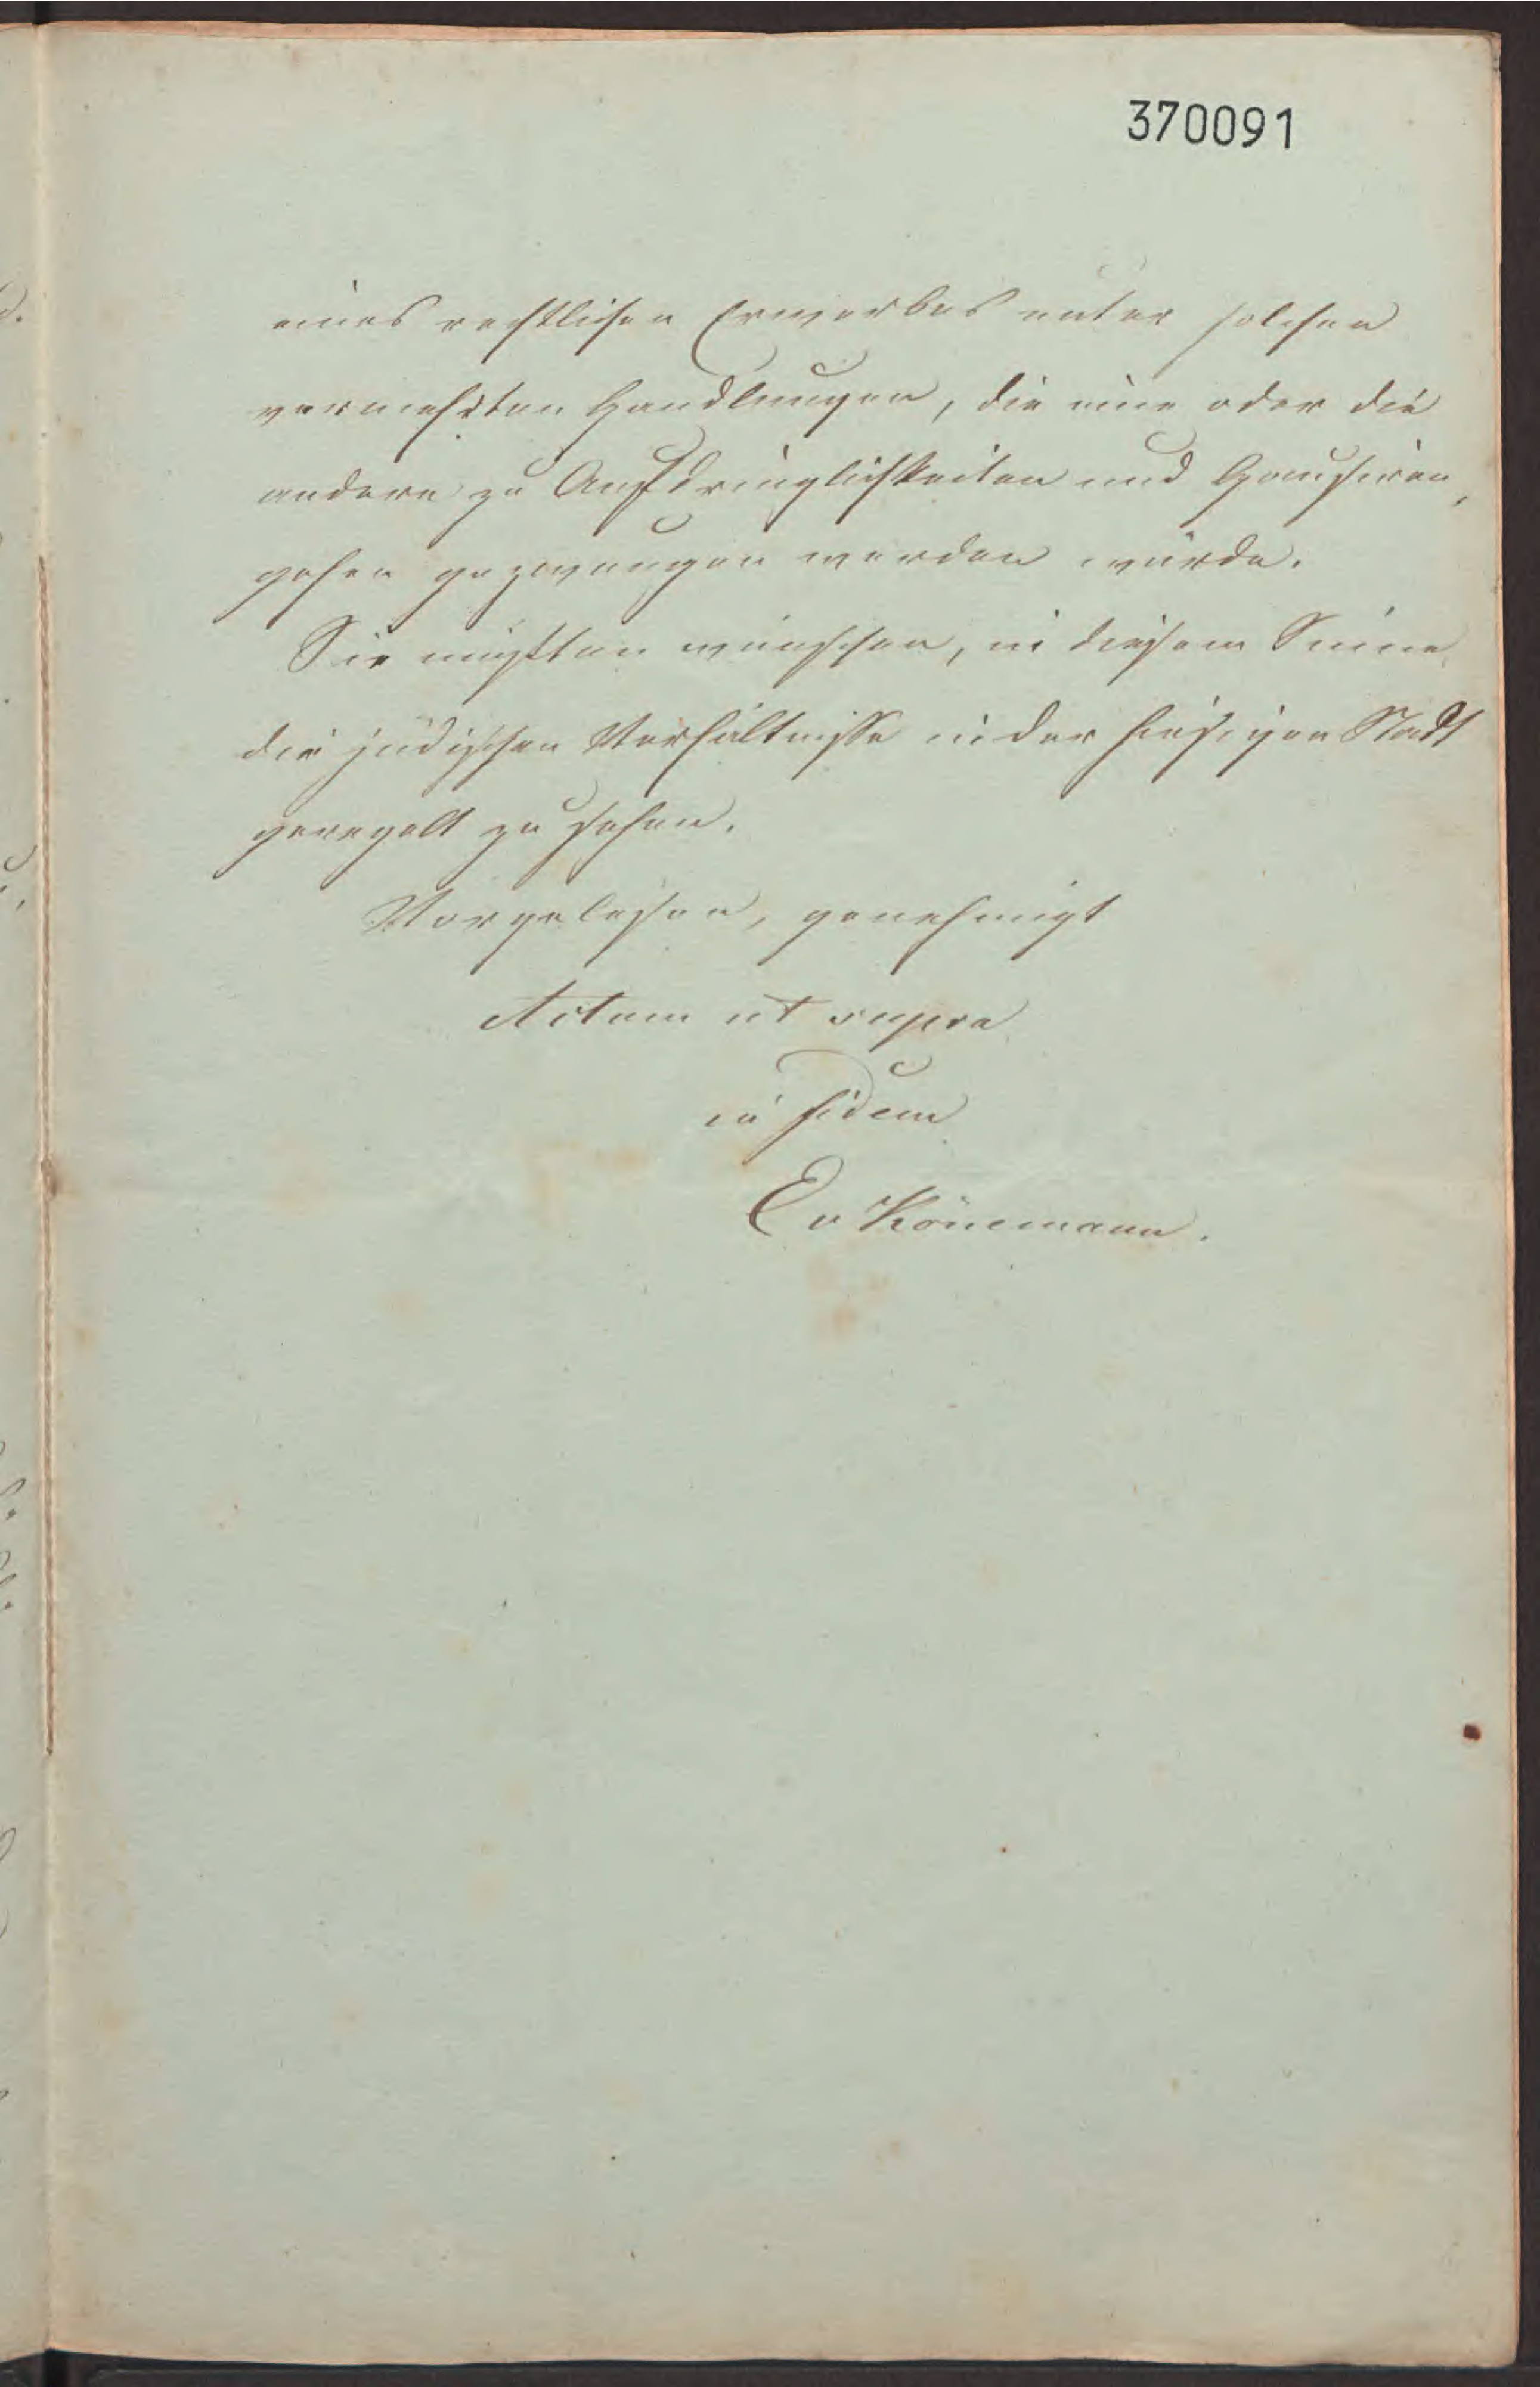 370091
eines rechtlichen Erwerbes unter solchen
vermehrten Handlungen, die eine oder die
andere zu Aufdringlichkeiten und Hausiren,
gehen gezwungen werden würde.
Sie müßten wünschen, in diesem Sinne
die jüdischen Verhältnisse in der hiesigen Stadt
geregelt zu sehen.
Vorgelesen, genehmigt
Actum ut supra
in fidem
E v Könemann.